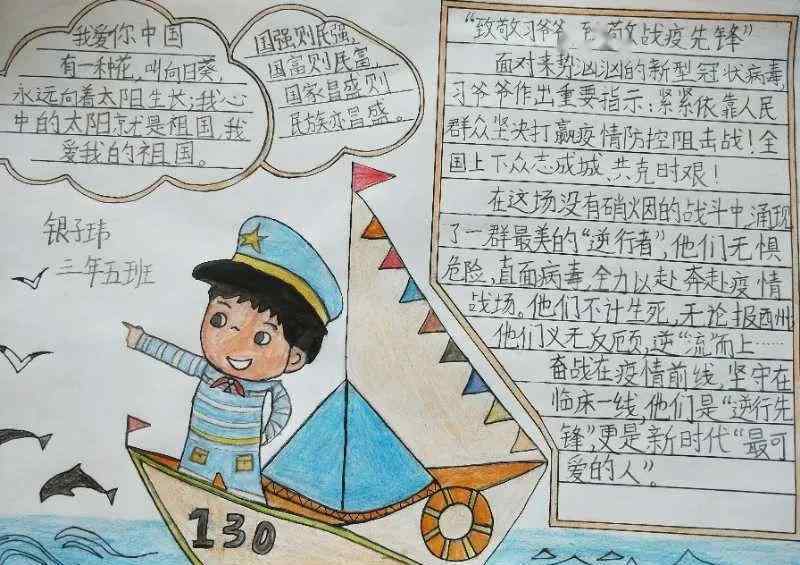 我爱你中国
有一种花，叫向日葵，
永远向着太阳生长；我心
中的太阳就是祖国，我
爱我的祖国。
国强则民强，
国富则民富，
国家昌盛则
民族亦昌盛。
银子玮
三年五班
130
“致敬习爷爷 致敬战疫先锋”
面对来势汹汹的新型冠状病毒，
习爷爷作出重要指示：紧紧依靠人民
群众坚决打赢疫情防控阻击战！全
国上下众志成城，共克时艰！
在这场没有硝烟的战斗中，涌现
了一群最美的“逆行者”，他们无惧
危险，直面病毒，全力以赴奔赴疫情
战场。他们不计生死，无论报酬，
他们义无反顾，逆“流”而上……
奋战在疫情前线，坚守在
临床一线，他们是“逆行先
锋”，更是新时代“最可
爱的人”。